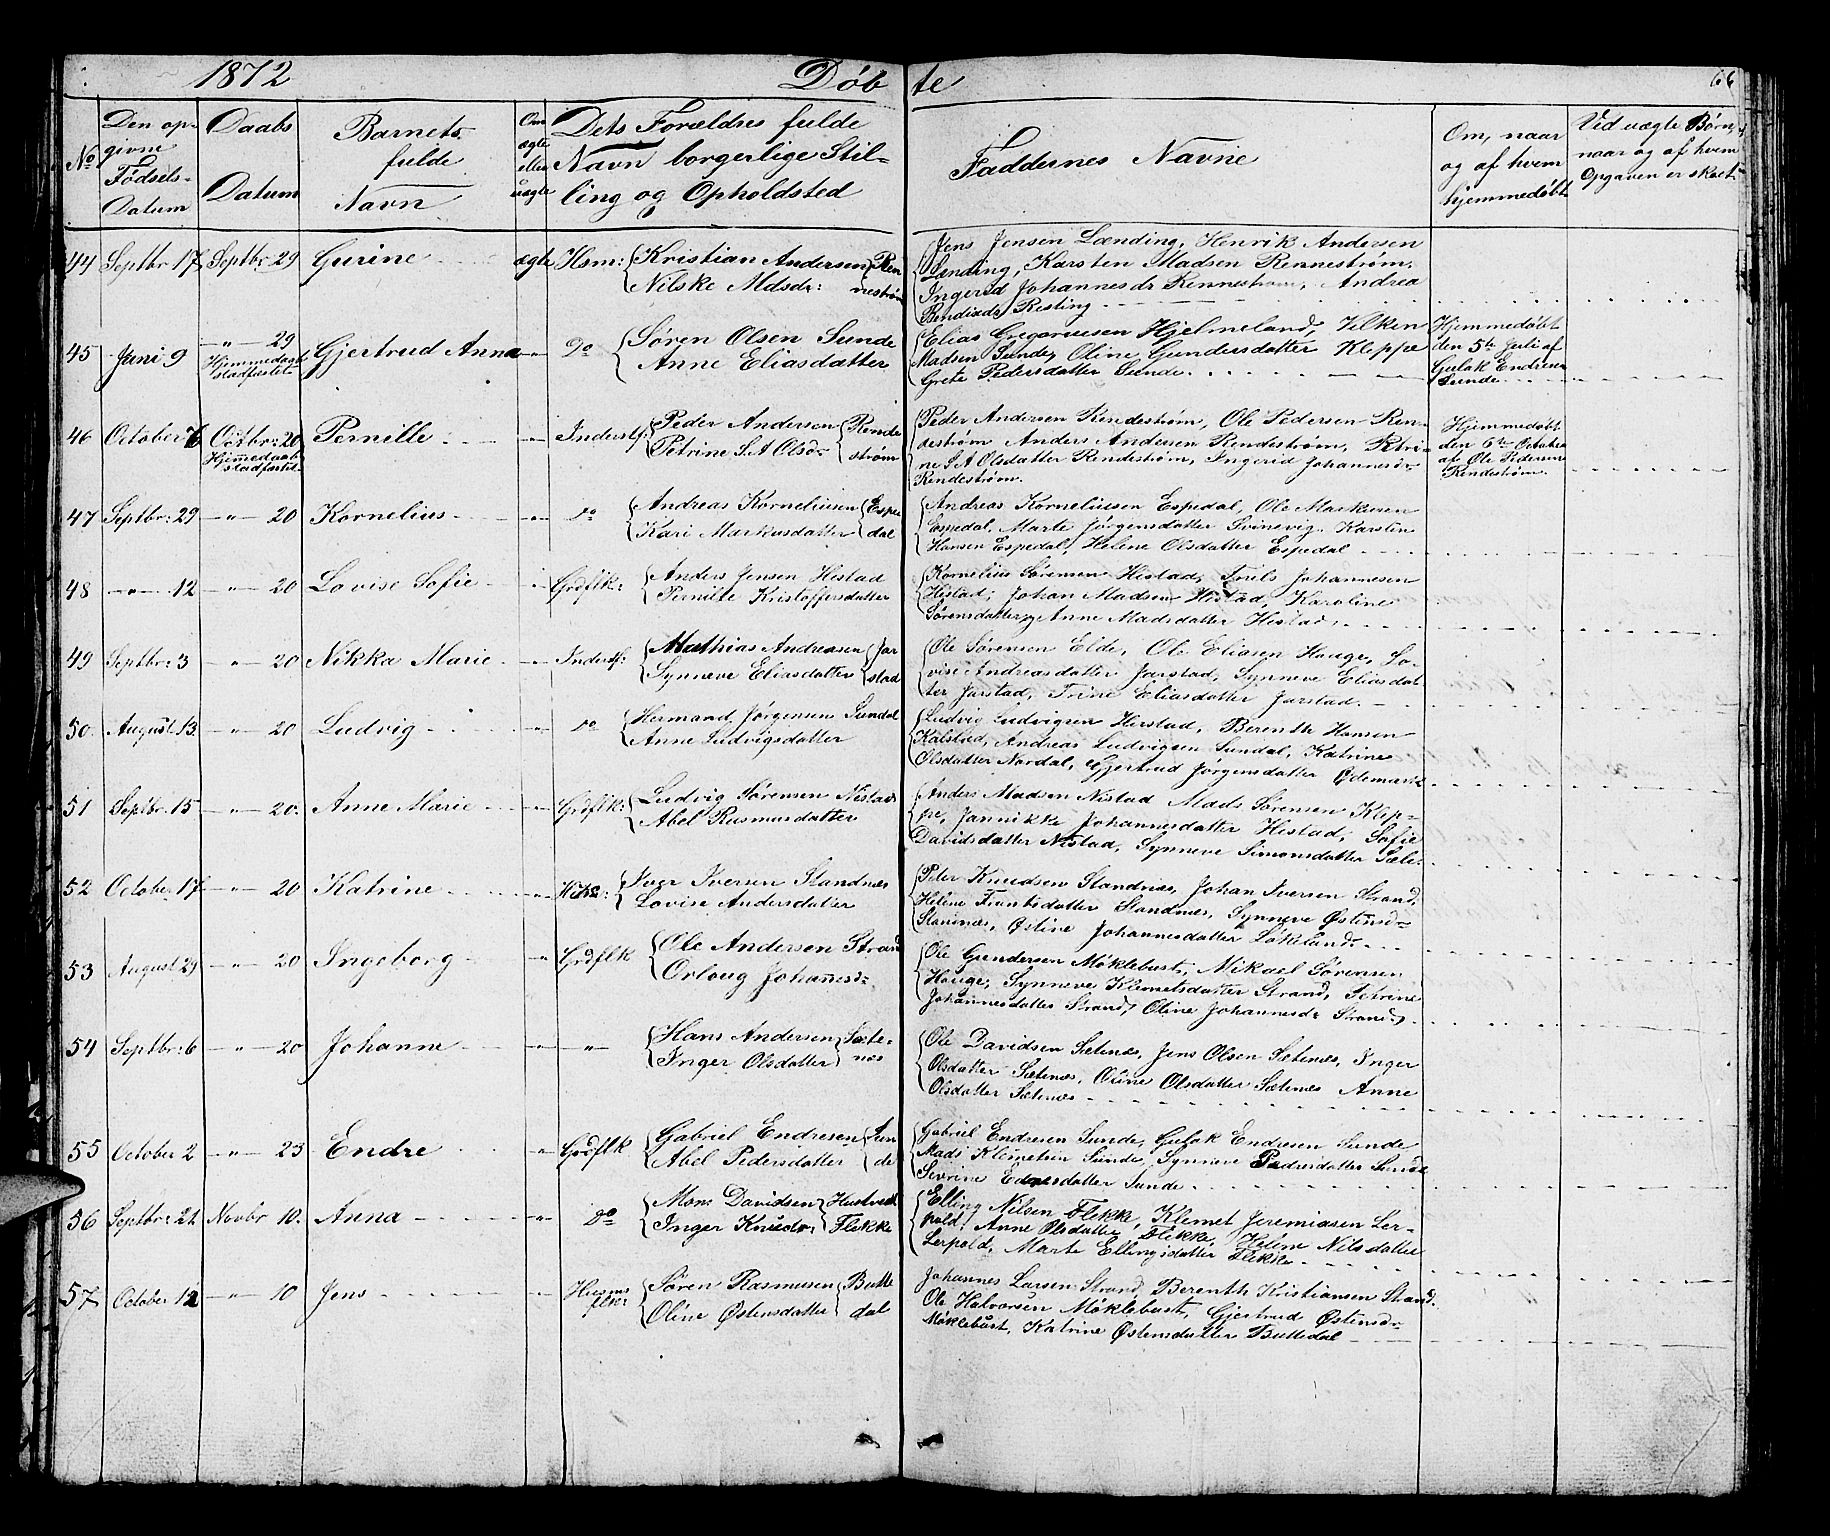 1872 Døbte 66
No
Den op-
givne
Fødsels-
Datum
Daabs
Datum
Barnets
fulde
Navn
Om
ægte
eller
uægte
Dets Forældres fulde
Navn borgerlige Stil-
ling og Opholdsted
Faddernes Navne
Om, naar
og af hvem
hjemmedøbt
Ved uægte Børn,
naar og af hvem
Opgaven er skeet
44 Septbr 17 Septbr. 29 Gurine ægte Hsm: Kristian Andersen Ren
Nilske Mdsdr: nestrøm
Jens Jensen Lænding, Henrik Andersen
Lænding, Karsten Madsen Rennestrøm.
Ingerid Johannesdr Rennestrøm, Andrea
Risting
45 Juni 9 -"- 29 Gjertrud Anna -"- Do Søren Olsen Sunde
Hjemmedaab
stadfæstet
Anne Eliasdatter
Elias Gregoriusen Hjelmeland, Vilken
Madsen Sunde, Oline Gundersdatter Kleppe
Grete Pedersdatter Sunde
Hjemmedøbt
den 5te Juli af
Gulak Endresen
Sunde
46 October 6 Octbr: 20 Pernille -"- Inderstf: Peder Andersen Rende
Hjemmedaab
stadfæstet
Petrine S.A Olsdr strøm
Peder Andersen Rendestrøm, Ole Pedersen Ren-
destrøm Anders Andersen Rendestrøm, Petri-
ne S.A Olsdatter Rendestrøm, Ingerid Johannesdr
Rendestrøm.
Hjemmedøbt
den 6te October
af Ole Pedersen
Rendestrøm.
47 Septbr: 29 -"- 20 Kornelius -"- do Andreas Korneliusen Espe
Kari Markusdatter dal
Andreas Korneliusen Espedal, Ole Markusen
Espedal, Marte Jørgensdatter Svinevig, Karsten
Hansen Espedal, Helene Olsdatter Espedal
48 -"- 12 -"- 20 Lovise Sofie -"- Grdflk: Anders Jensen Hestad
Pernille Kristoffersdatter
Kornelius Sørensen Hestad, Johannesen
Hestad, Johan Madsen Hestad, Karoline
Sørensdatter, Anne Madsdatter Hestad
49 Septbr: 3 -"- 20 Nikka Marie -"- Inderstf: Mathias Andreasen Jar
Synneve Eliasdatter stad
Ole Sørensen Elde, Ole Eliasen Hauge, Lo-
vise Andreasdatter Jarstad, Synneve Eliasdat
ter Jarstad, Trine Eliasdatter Jarstad.
50. August 13. -"- 20 Ludvig -"- do Hermand Jørgensen Sundal
Anne Ludvigsdatter
Ludvig Ludvigsen Herstad, Berenth Hansen
Kalstad, Andreas Ludvigsen Sundal, Katrine
Olsdatter Nordal, Gjertrud Jørgensdatter Ødemark
51 Septbr: 15 -"- 20. Anne Marie -"- Grdflk: Ludvig Sørensen Nistad
Abel Rasmusdatter
Anders Madsen Nistad Mads Sørensen Klep-
pe, Jannikke Johannesdatter Hestad, Sofie
Davidsdatter Nistad, Synneve Simonsdatter Sæle
52 October 17 -"- 20 Katrine -"- Iver Iversen Standnæs
Lovise Andersdatter
Peter Knudsen Standnæs, Johan Iversen Strand,
Helene Frantsdatter Standnæs, Synneve Østensdr
Standnæs, Østine Johannesdatter Løkeland.
53 August 29 -"- 20 Ingeborg -"- Grdflk Ole Andersen Strand
Orloug Johannesdr
Ole Gundersen Møklebust, Mikael Sørensen
Hauge, Synneve Klemetsdatter Strand, Petrine
Johannesdatter Strand, Oline Johannesdr Strand
54 Septbr: 6 -"- 20 Johanne -"- -"- Hans Andersen Sæte-
Inger Olsdatter næs
Ole Davidsen Sætenæs, Jens Olsen Sætenæs, Inger
Olsdatter Sætenæs, Oline Olsdatter Sætenæs Anne
Olsdatter Sætenæs
55 October 2 -"- 23 Endre -"- Grdflk Gabriel Endresen Sun
Abel Pedersdatter de
Gabriel Endresen Sunde, Gulak Endresen Sunde
Mads Klemetsen Sunde, Synneve Pedersdatter Sunde
Sivrine Endresdatter Sunde
56 Septbr: 21 Novbr 10. Anna -"- do Mons Davidsen
Inger Knudsdr Flekke
Elling Nilsen Flekke, Klemet Jeremiasen Ler-
pold, Anne Olsdatter Flekke, Helene Nilsdatter
Lerpold, Marte Ellingsdatter Flekke
57 October 12 -"- 10 Jens -"- Husms Søren Rasmusen Butte
flk: Oline Østensdatter dal
Johannes Larsen Strand, Berenth Kristiansen Strand.
Ole Halvorsen Møklebust, Gjertrud Østensdr
Møklebust, Katrine Østensdatter Buttedal